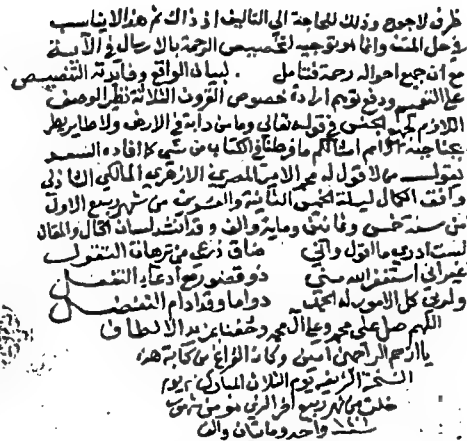 ظرف لاجوج وذلك للحاجة الى التاليف اذ ذاك ثم هذا لا يناسب
لاجل المتن وانما هو توجيه لتخصيص الرحمة بالارسال في الآية
مع ان جميع احواله رحمة فتأمل . لبيان الواقع وفايدته التنصيص
على التعميم ودفع توهم ارادة خصوص القرون الثلاثة نظر الوصف
اللازم لجميع الجنس في قوله تعالى وما من دابة في الارض ولا طاير يطير
بجناحيه الا امم امثالكم ما فرطنا في الكتاب من شيء كما افاده السعد
يقول من لا قول له محمد الامير المصري الازهري المالكي الشاذلي
وافق الكمال ليلة الخميس الثانية والعشرين من شهر ربيع الاول
من سنة خمس وثمانين وماية والف وقد انشد لسان الحال والمقال
لست ادري ما اقول واني ضاق ذرعي من ترهات التقول
غير اني استغفر الله مني ذو قصور مع ادعاء التفعل
ولربي كل الامور له الحمد دواما وقد ادام التفضل
اللهم صل على محمد وعلى آل محمد وحفنا بمزيد الالطاف
يا ارحم الراحمين امين وكان الفراغ من كتابة هذه
النسخة الشريفة يوم الثلاث المبارك يوم
خلت من شهر ربيع اخر الذي هو من شهور
سنة واحد ومائتان والف